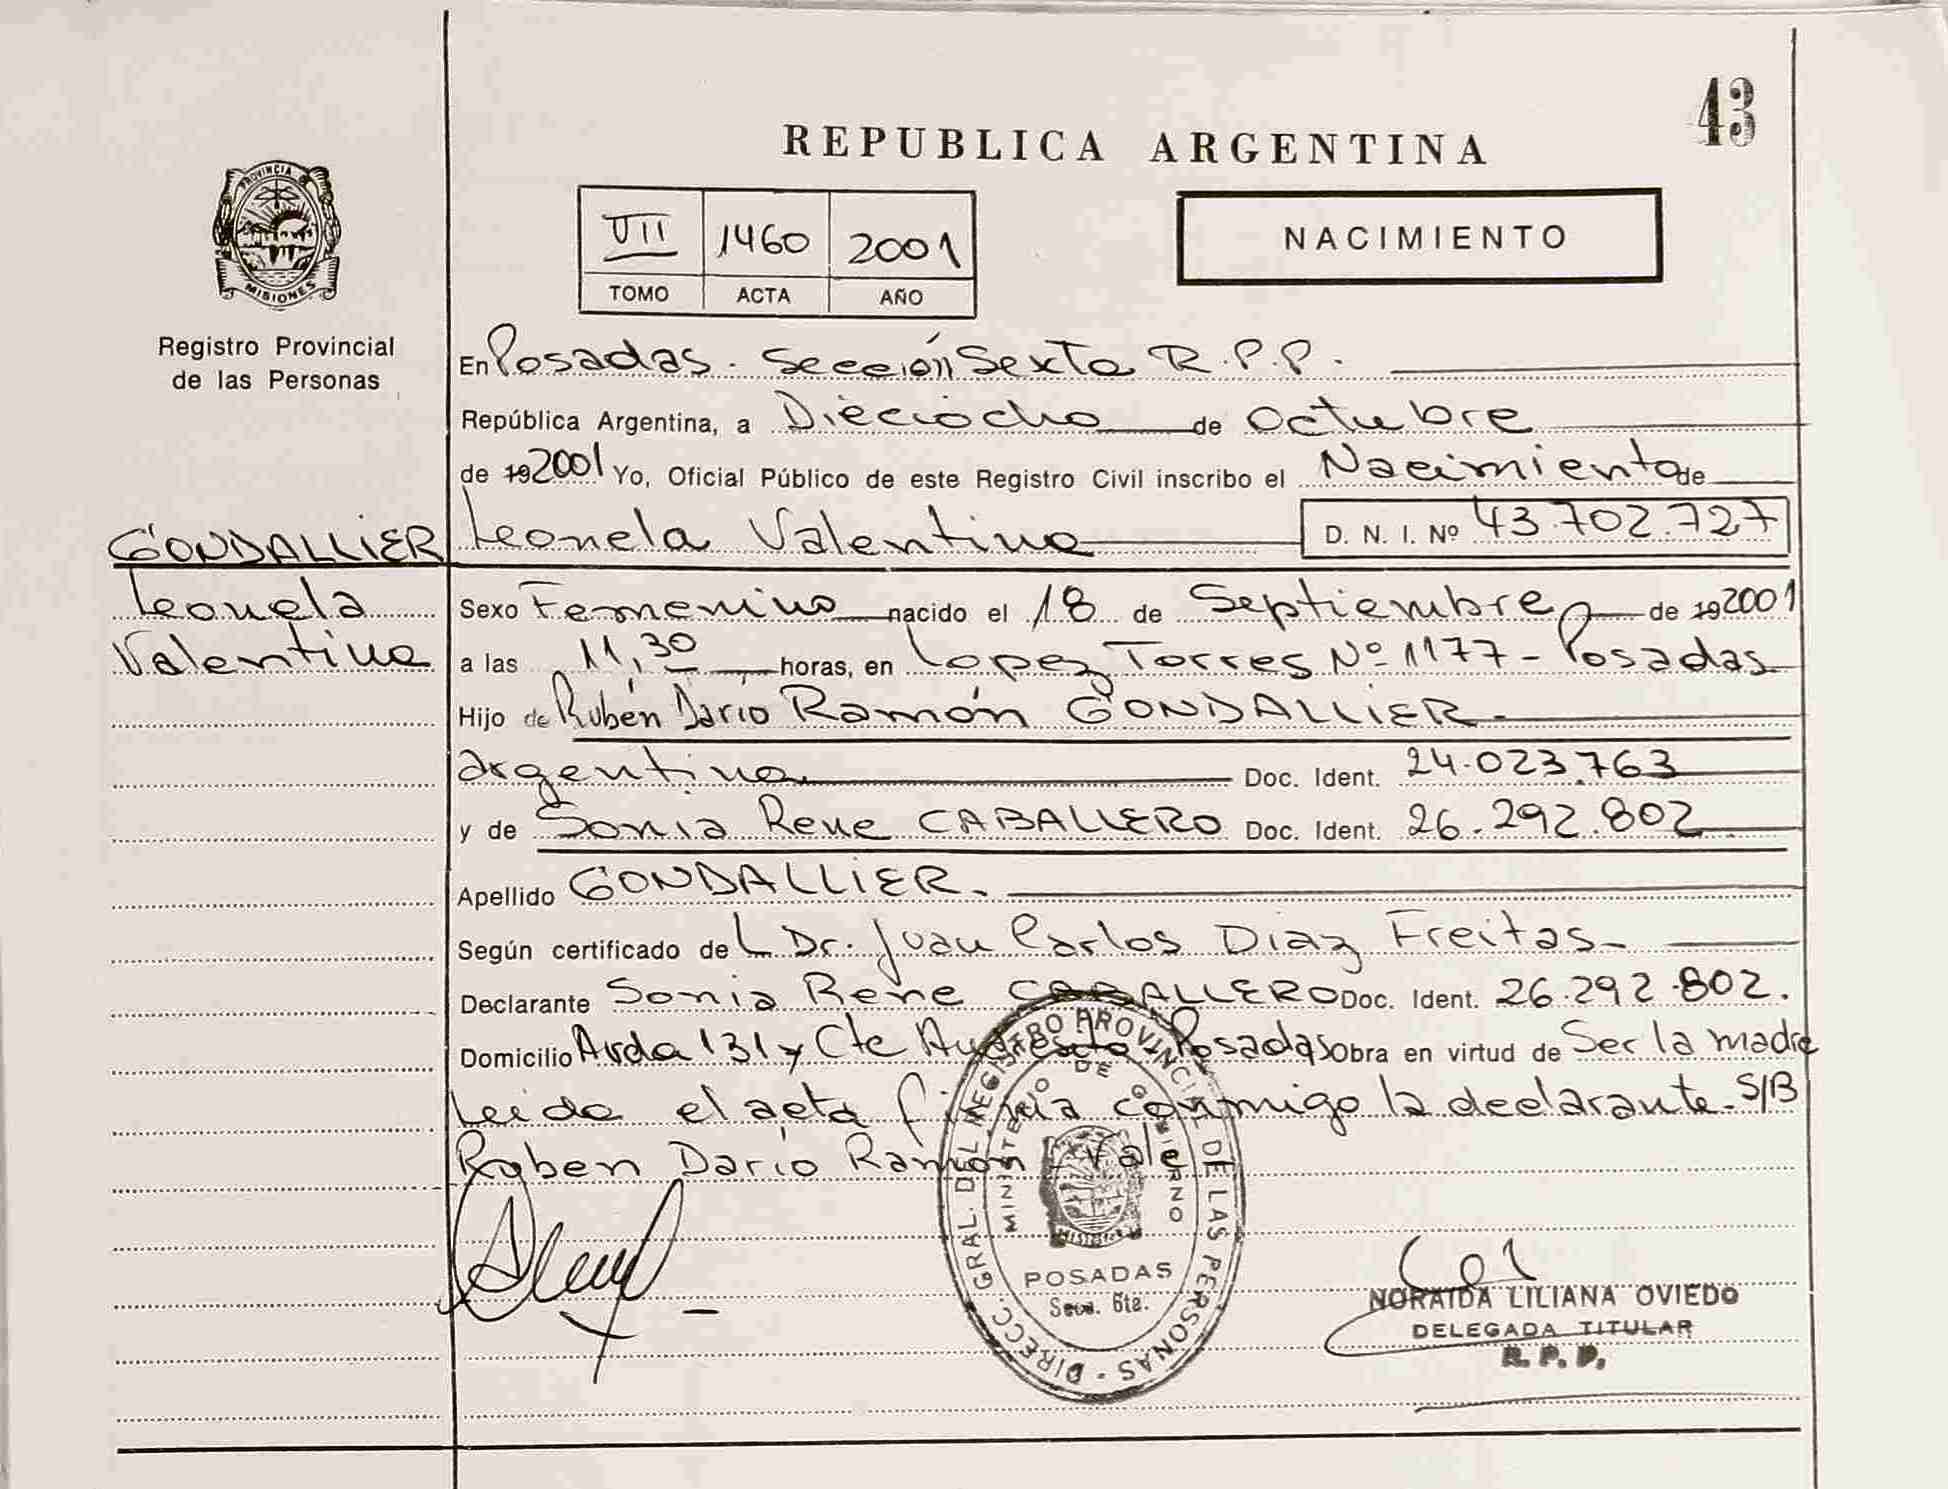 43
REPUBLICA ARGENTINA
PROVINCIA DE
MISIONES
Registro Provincial
de las Personas
VII 1460 2001
TOMO ACTA AÑO
NACIMIENTO
En Posadas. Sección Sexta R.P.P.
República Argentina, a Dieciocho de Octubre
de 19 2001 Yo, Oficial Público de este Registro Civil inscribo el Nacimiento de
GONDALLIER
Leonela Valentina D. N. I. Nº 43.702.727
Leonela
Valentina
Sexo Femenino nacido el 18 de Septiembre de 19 2001
a las 11,30 horas, en Lopez Torres Nº 1177 - Posadas
Hijo de Rubén Darío Ramón GONDALLIER.
argentina Doc. Ident. 24.023.763
y de Sonia Rene CABALLERO Doc. Ident. 26.292.802
Apellido GONDALLIER.
Según certificado del Dr. Juan Carlos Diaz Freitas.
Declarante Sonia Rene CABALLERO Doc. Ident. 26.292.802.
Domicilio Avda 131 y Cte Posadas Obra en virtud de Ser la madre
Leida el acta firma conmigo la declarante. S/B
Ruben Dario Ramón Vale
DIRECC. GRAL. DEL REGISTRO PROVINCIAL DE LAS PERSONAS -
MINISTERIO DE GOBIERNO
POSADAS
Secc. 6ta.
NORAIDA LILIANA OVIEDO
DELEGADA TITULAR
R. P. P.